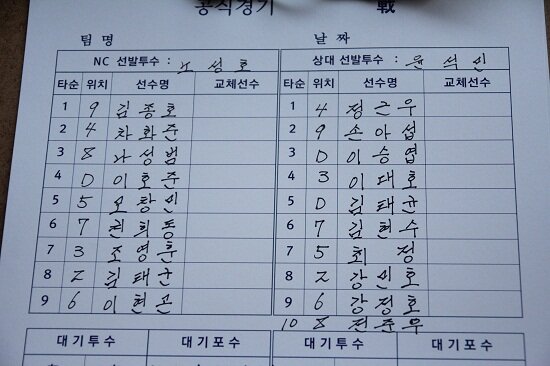 공식경기 戰
팀 명 날 짜
NC 선발투수 : 노성호 상대 선발투수 : 윤석민
타순 위치 선수명 교체선수 타순 위치 선수명 교체선수
1 9 김종호 1 4 정근우
2 4 차화준 2 9 손아섭
3 8 나성범 3 D 이승엽
4 D 이호준 4 3 이대호
5 5 모창민 5 D 김태균
6 7 권희동 6 7 김현수
7 3 조영훈 7 5 최 정
8 2 김태군 8 2 강민호
9 6 이현곤 9 6 강정호
10 8 전준우
대기투수 대기포수 대기투수 대기포수